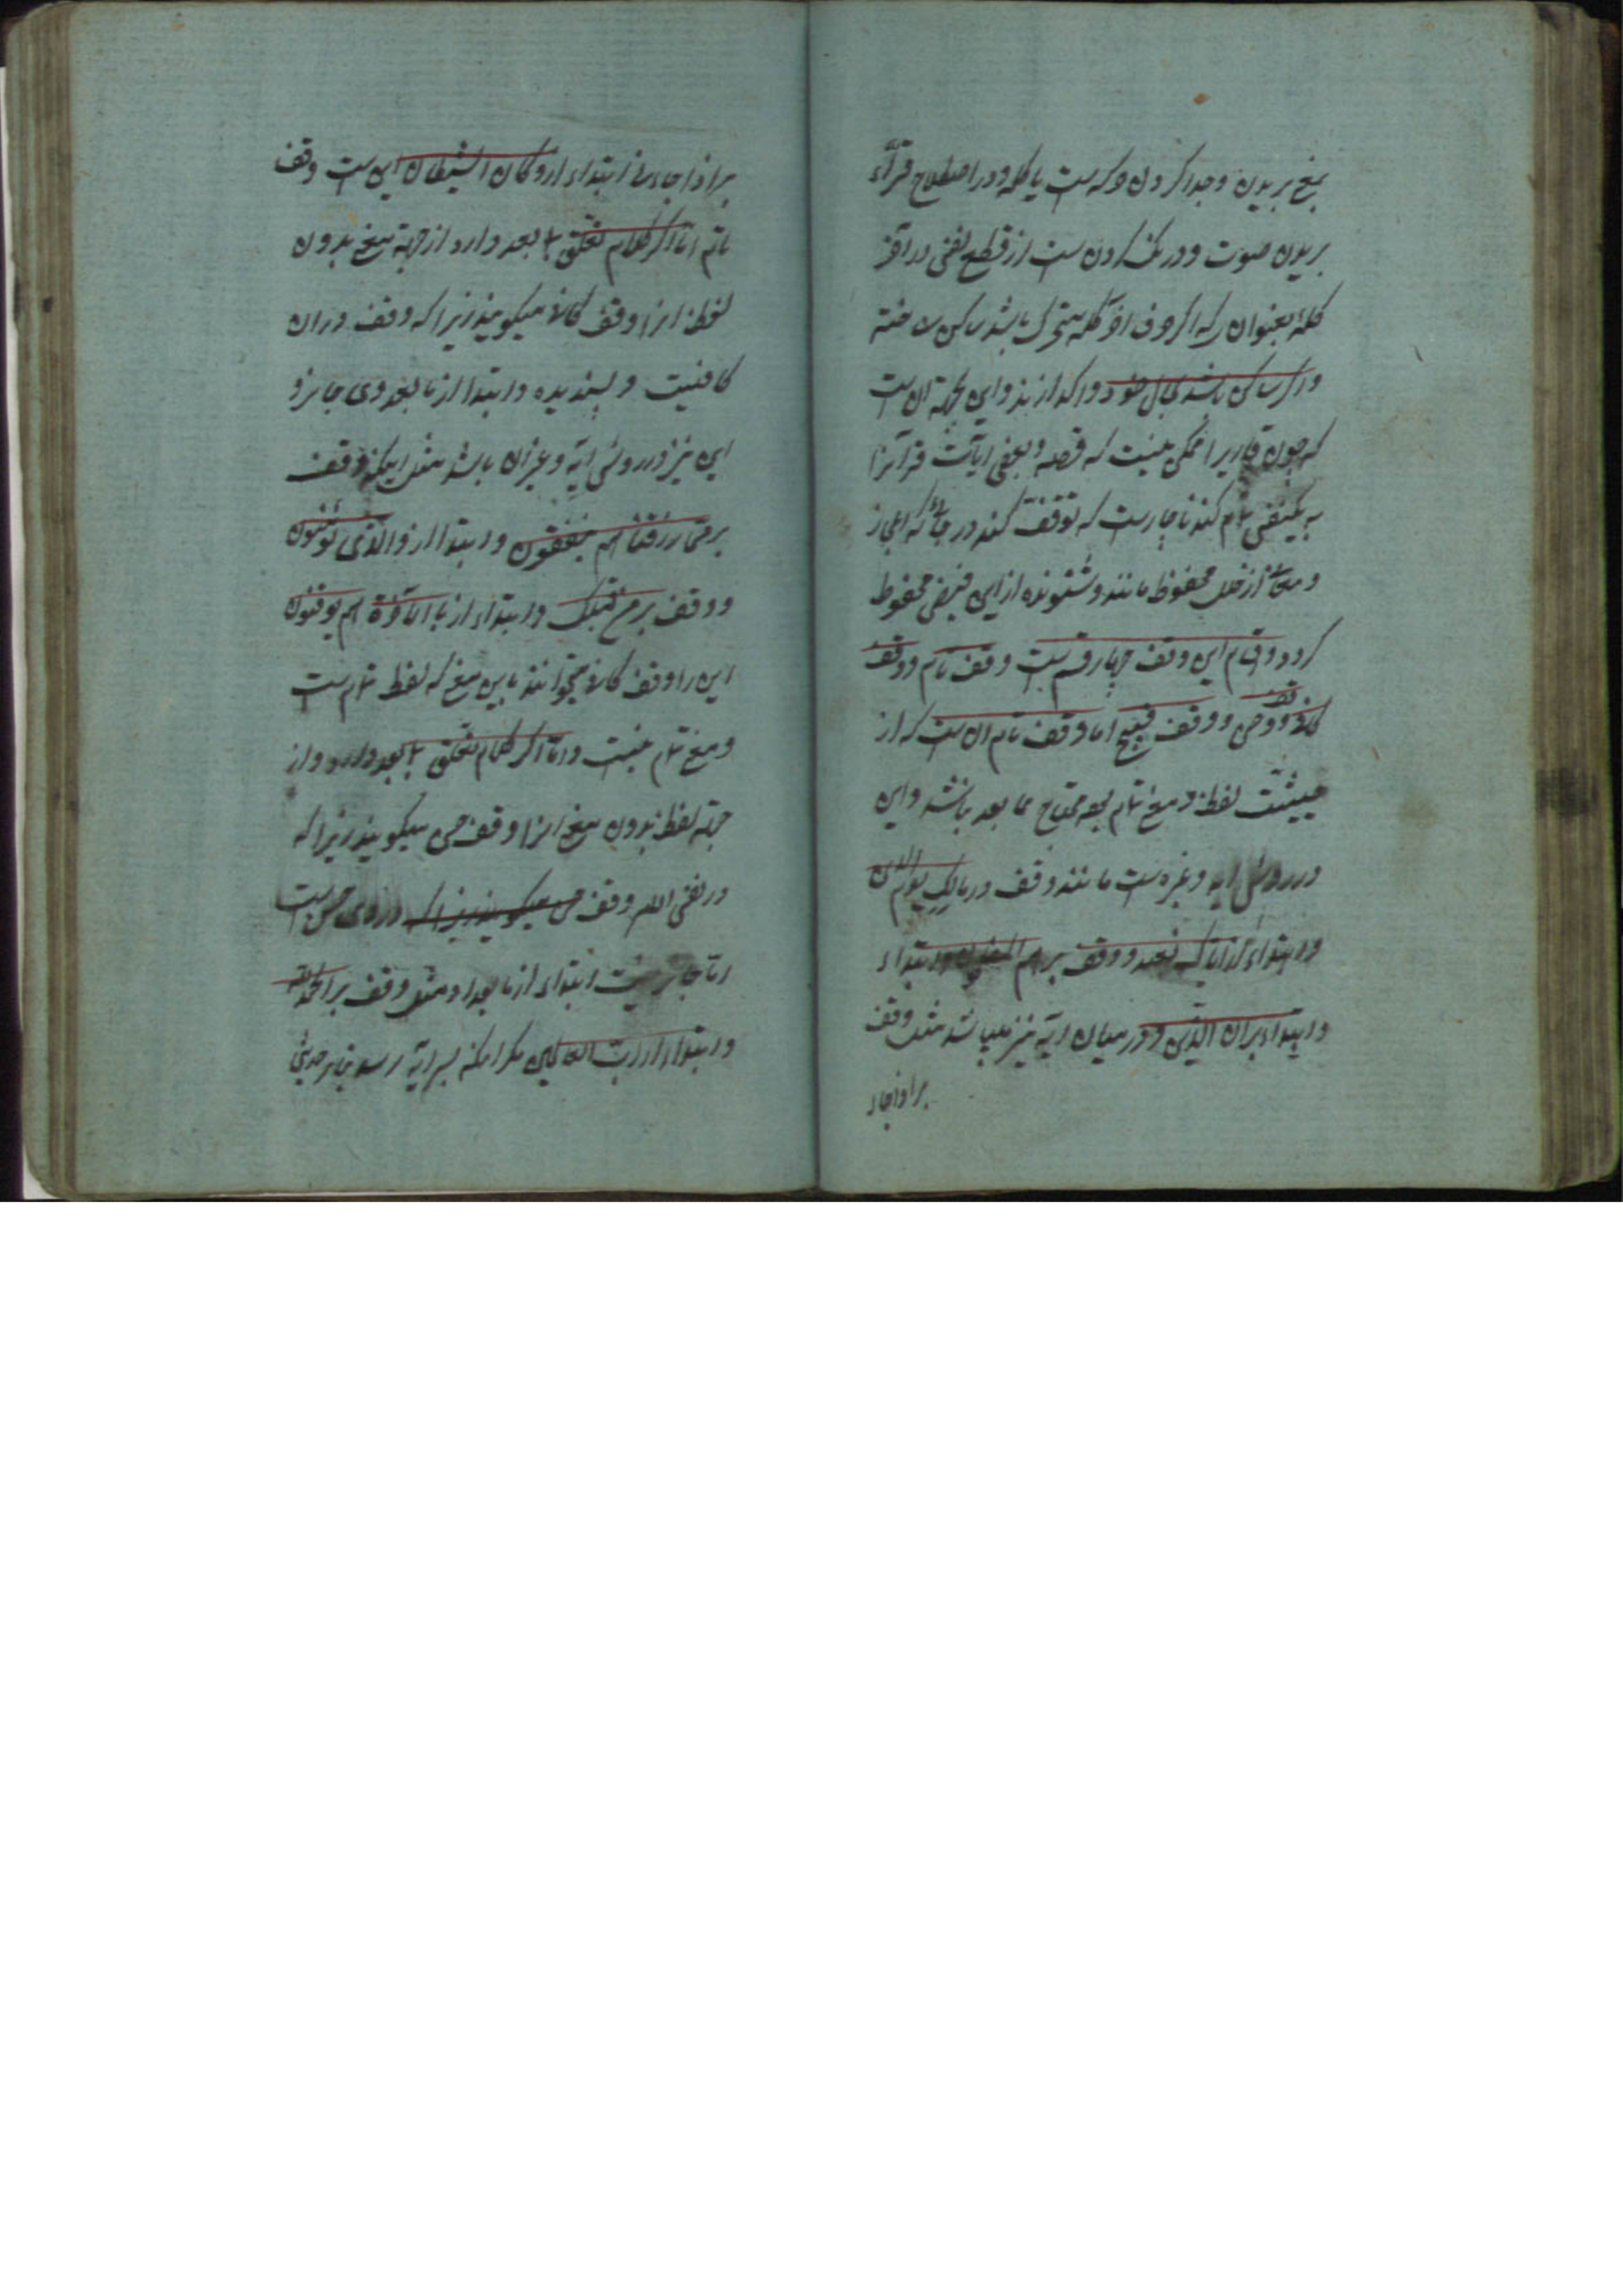 بمعنی بریدن و جدا کردن حرکه است یا کلمه و در اصطلاح قرّآء
بریدن صوت و درنگ کردن است از قطع نفس در آخر
کلمهٔ بعنوانی که اگر حرف آخر کلمه متحرک باشد ساکن ساخته
و اگر ساکن باشد بحال خود واگذارند و این بجهة آن است
که چون قاری را ممکن نیست که قصه و بعضی آیات قرآنرا
به یکنفس تمام کند ناچار است که توقف کند در جائی که اعجاز
و معانی از خلل محفوظ مانند و شنونده از این فیض محظوظ
کردد و اقسام این وقف چهار قسم است وقف تام و وقف
کافی و وقف حسن و وقف قبیح اما وقف تام آن است که از
حیثیت لفظ و معنی تمام بوده محتاج بما بعد باشد و این
در رؤس آیه و غیره است مانند وقف در مالک یوم الدین
و ابتداء از ایاک نعبد و وقف بر هم المفلحون و ابتداء
و ابتداء بر ان الذین و در میان آیه نیز میباشد مثل وقف
بر اذ جاء
بر اذ جاءنی ابتداء از و کان الشیطان این است وقف
تام اما اگر کلام تعلق بما بعد دارد از جهة معنی بدون
لفظ انرا وقف کافی میکویند زیرا که وقف در ان
کافیست و پسندیده و ابتدا از ما بعد وی جایز و
این نیز در رؤس آیه و غیر ان باشد مثل اینکه وقف
بر مما رزقناهم ینفقون و ابتدا از و الذین یؤمنون
و وقف بر من قبلک و ابتداء از بالاخرة هم یوقنون
این را وقف کافی میخوانند باین معنی که لفظ تمام است
و معنی تمام نیست و اما اگر کلام تعلق بما بعد دارد و از
جهة لفظ بدون معنی انرا وقف حسن میکویند زیرا که
در نفس الامر وقف حسن میکویند زیرا که در وی حسن است
اما جایز نیست ابتداء از ما بعد او مثل وقف بر الحمد لله
و ابتداء از رب العالمین مکر انکه بسر آیه رسد بنابر حدیثی